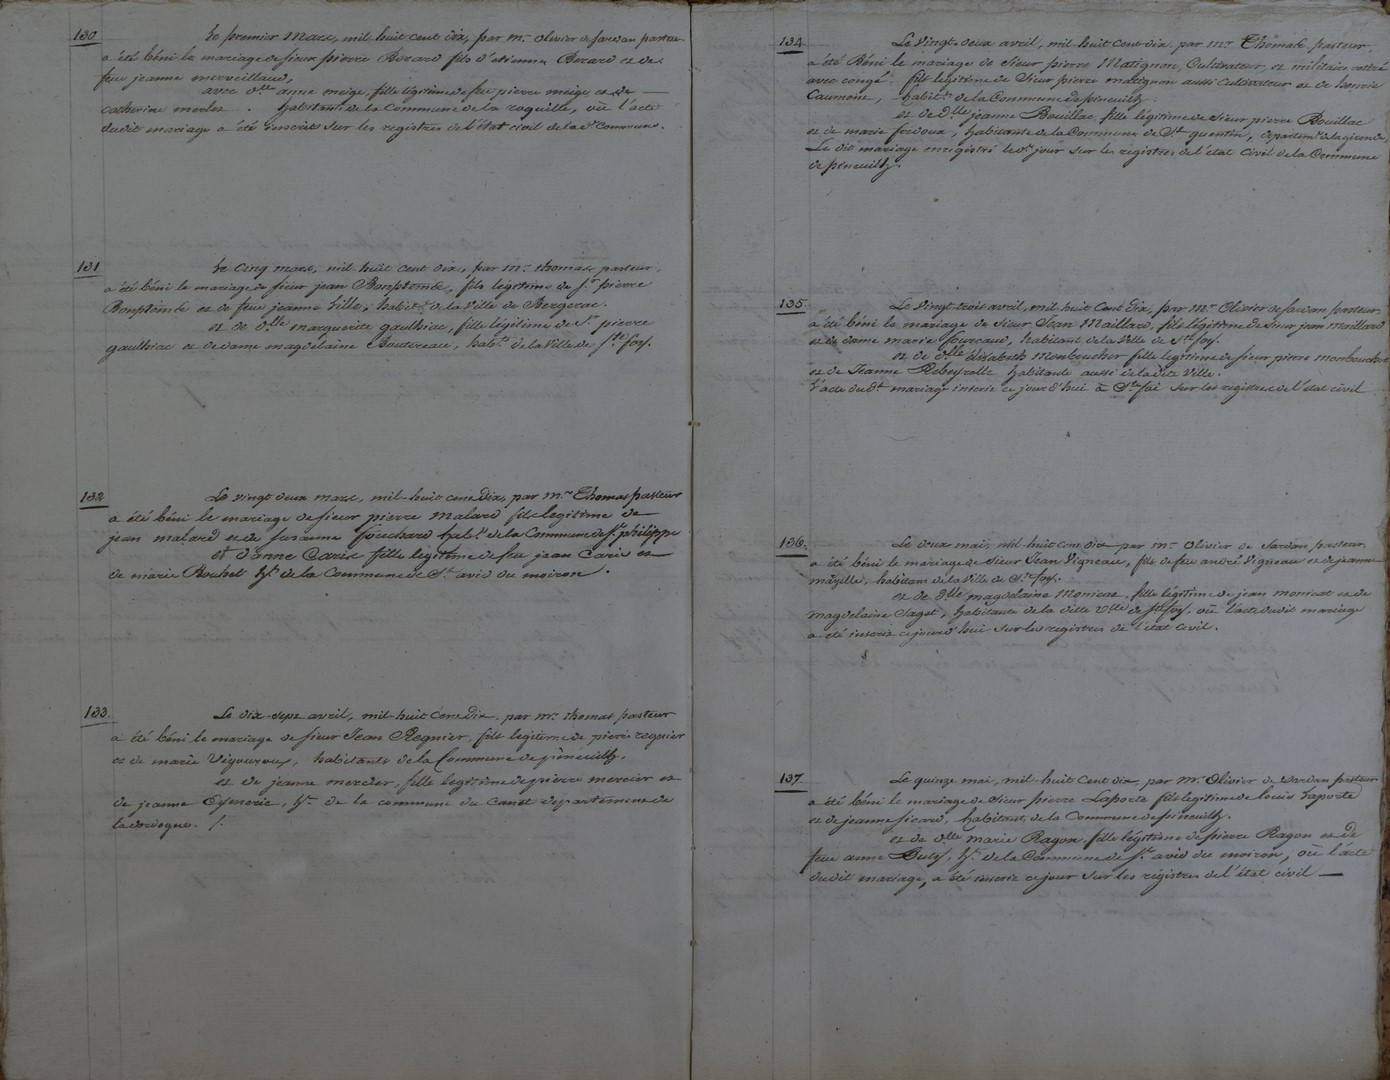 130
Le premier Mars, mil huit cent dix, par mr. Olivier de Sardan pasteur
a été béni le mariage de sieur pierre Berard fils d'etienne Berard et de
feue jeanne merveillaud,
avec dlle anne meige, fille légitime de feu pierre meige et de
catherine . habitans de la Commune de la roquille, où l'acte
dudit mariage a été inscrit sur les registres de l'état civil de la de Commune.
131
Le cinq mars, mil huit cent dix, par mr. thomas pasteur,
a été béni le mariage de sieur jean Bonptemts, fils legitime de sr. pierre
Bonptemts et de feue jeanne Lille, habit. de la Ville de Bergerac.
et de dlle marguerite gaulhiac, fille légitime de Sr. pierre
gaulhiac et de dame magdelaine Boutereau, habts. de la Ville de Ste foy.
132
Le vingt deux mars, mil-huit cent Dix, par mr. Thomas pasteur
a été béni le mariage de sieur pierre malard fils legitime de
jean malard et de susanne fouchard habt. de la Commune de St. philippe
et d'anne Caris fille legitime de feu jean Caris et
de marie Bochet hte. de la Commune de St. avid du moiron.
133.
Le dix-sept avril, mil-huit cent Dix, par mr. thomas pasteur
a été béni le mariage de sieur Jean Regnier, fils legitime de pierre regnier
et de marie Vigouroux, habitants de la Commune de pineuilh.
et de jeanne mercier, fille legitime de pierre mercier et
de jeanne Eymerie, hte. de la commune du Canet departement de
la dordogne. /.
134.
Le Vingt-deux avril, mil huit cent dix, par mr. Thomas pasteur,
a été Béni le mariage de Sieur pierre Matignon, Cultivateur, et militaire retiré
avec congé, fils legitime de Sieur pierre matignon aussi Cultivateur et de
Caumone, habits. de la Commune de pineuilh
et de dlle jeanne Bouillac, fille légitime de Sieur pierre Bouillac
et de marie fredoux, habitante de la Commune de St. quentin, departemt. de la gironde,
Le dit mariage enregistré le dt. jour sur les registres de l'état Civil de la Commune
de pineuilh.
135.
Le Vingt trois avril, mil huit Cent Dix, par mr. Olivier de Sardan pasteur
a été béni le mariage de Sieur Jean Maillard, fils légitime de Sieur jean maillard
et de dame marie fourcaud, habitant de la Ville de Ste foy.
et de dlle élisabeth monboucher fille legitime de sieur pierre monboucher
et de Jeanne Rebeyrolle habitante aussi de la dite Ville.
L'acte du dt. mariage inscrit ce jourd'hui à Ste foi sur les registres de l'état civil
136.
Le deux mai, mil huit cent dix par mr. Olivier de Sardan pasteur,
a été béni le mariage de Sieur Jean Vigneau, fils de feu andré Vigneau et de jeanne
mazille, habitans de la Ville de Ste foy.
et de dlle magdelaine Monicat, fille légitime de jean monicat et de
magdelaine Saget, habitante de la Ville dte de ste foy, où l'acte dudit mariage
a été inscrit ce jourd'hui sur les registres de l'état civil.
137
Le quinze mai, mil huit Cent dix, par mr. Olivier de Sardan pasteur
a été béni le mariage de Sieur pierre Laporte fils legitime de louis Laporte
et de jeanne sicard, habitants de la Commune de pineuilh.
et de dlle marie Ragon, fille légitime de pierre Ragon et de
feue anne Duly, hte. de la Commune de St. avid du moiron, où l'acte
dudit mariage, a été inscrit ce jour sur les registres de l'état civil —